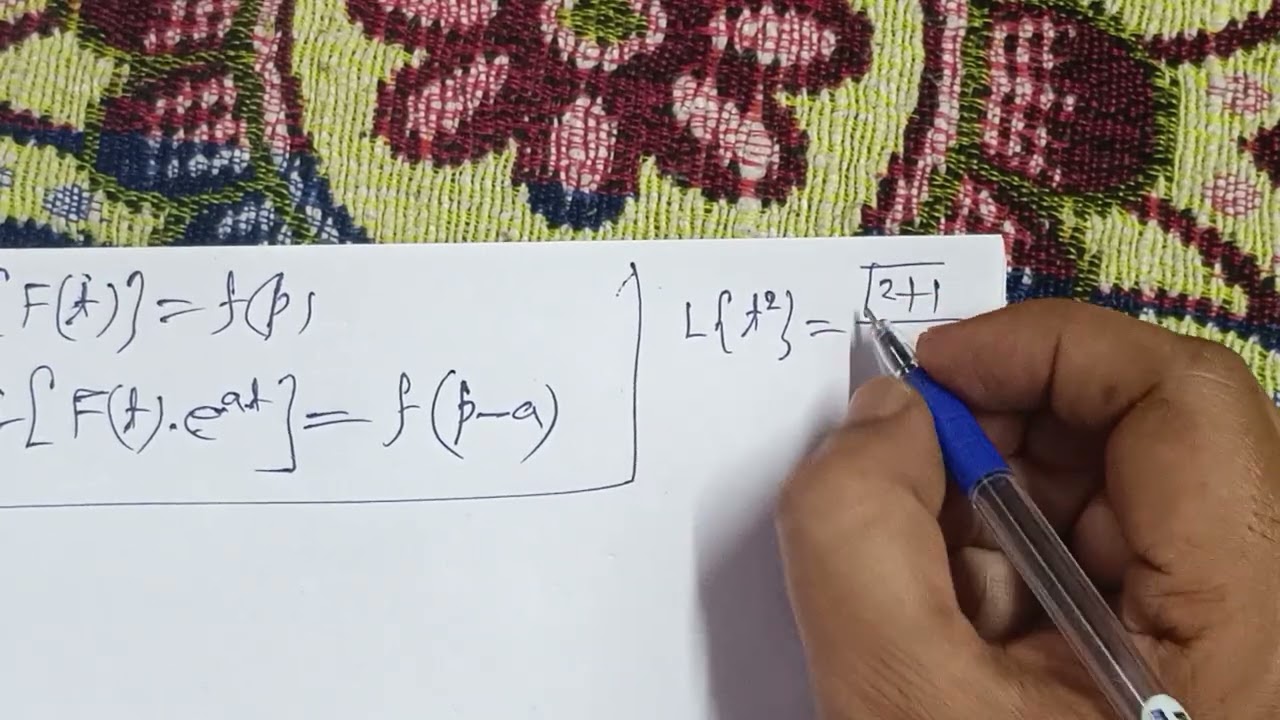 [F(t)] = f(p)
L[F(t).e^at] = f(p-a)
L{t²} = √2+1